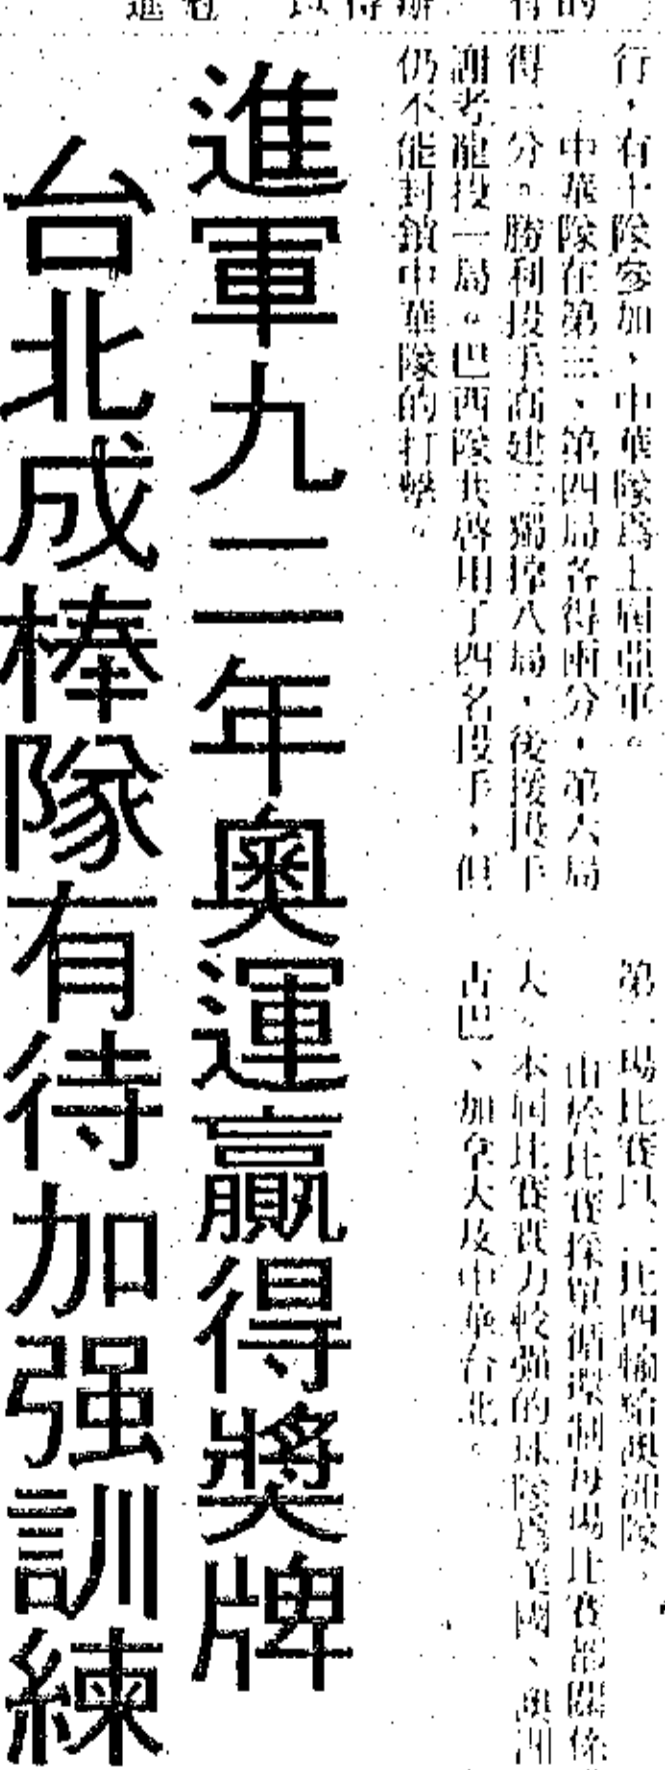 行，有十隊參加，中華隊為上屆亞軍。
中華隊在第三、第四局各得兩分，第六局
得一分。勝利投手高建三獨撐八局，後援投手
謝考龍投一局。巴西隊共啓用了四名投手，但
仍不能封鎖中華隊的打擊。
第一場比賽以二比四輸給澳洲隊，
由於比賽採單循環制每場比賽都關係
大。本屆比賽實力較強的球隊為美國、澳洲
古巴、加拿大及中華台北。
進軍九二年奧運贏得獎牌
台北成棒隊有待加强訓練